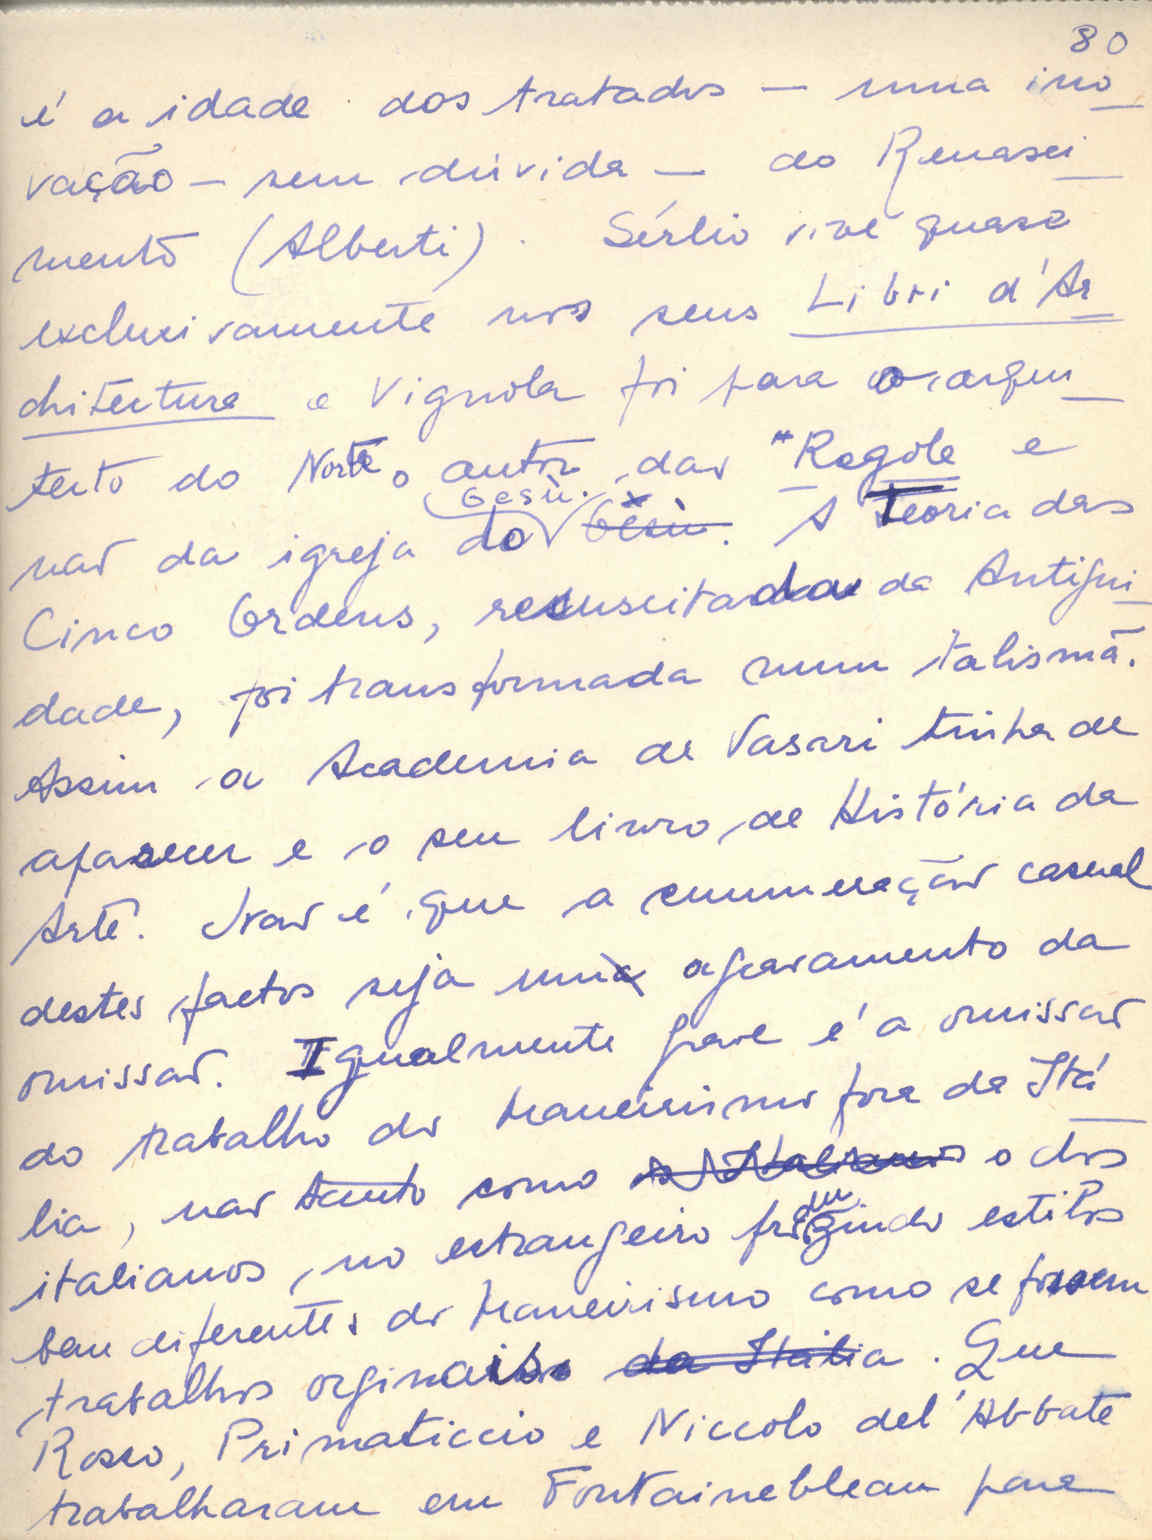 80
é a idade dos tratados — uma ino
vação — sem dúvida — do Renasci
mento (Alberti). Sérlio vive quase
exclusivamente nos seus Libri d'Ar
chitettura e Vignola foi para o arqui
tecto do Norte o autor das "Regole e
Gesù.
não da igreja do Gesù. A Teoria das
Cinco Ordens, ressuscitada da Antigui
dade, foi transformada num talismã.
Assim a Academia de Vasari tinha de
aparecer e o seu livro de História da
Arte. Não é que a enumeração casual
destes factos seja um agravamento da
omissão. Igualmente grave é a omissão
do trabalho do Maneirismo fora da Itá
lia, não tanto como o dos
italianos, no estrangeiro estilos
bem diferentes do Maneirismo como se fossem
trabalhos orginais da Itália. Que
Rosso, Primaticcio e Niccolo del'Abbate
trabalharam em Fontainebleau para